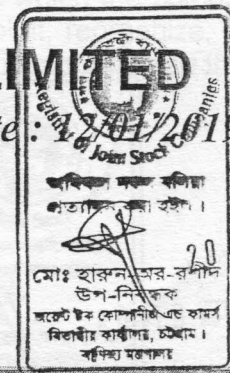 LIMITED
te : 12/01/201
Registrar of Joint Stock Companies
অবিকল নকল বলিয়া
প্রত্যায়ন করা হইল।
20
মোঃ হারুন-অর-রশীদ
উপ-নিবন্ধক
জয়েন্ট ষ্টক কোম্পানীজ এন্ড ফার্মস
বিভাগীয় কার্যালয়, চট্টগ্রাম।
বাণিজ্য মন্ত্রণালয়